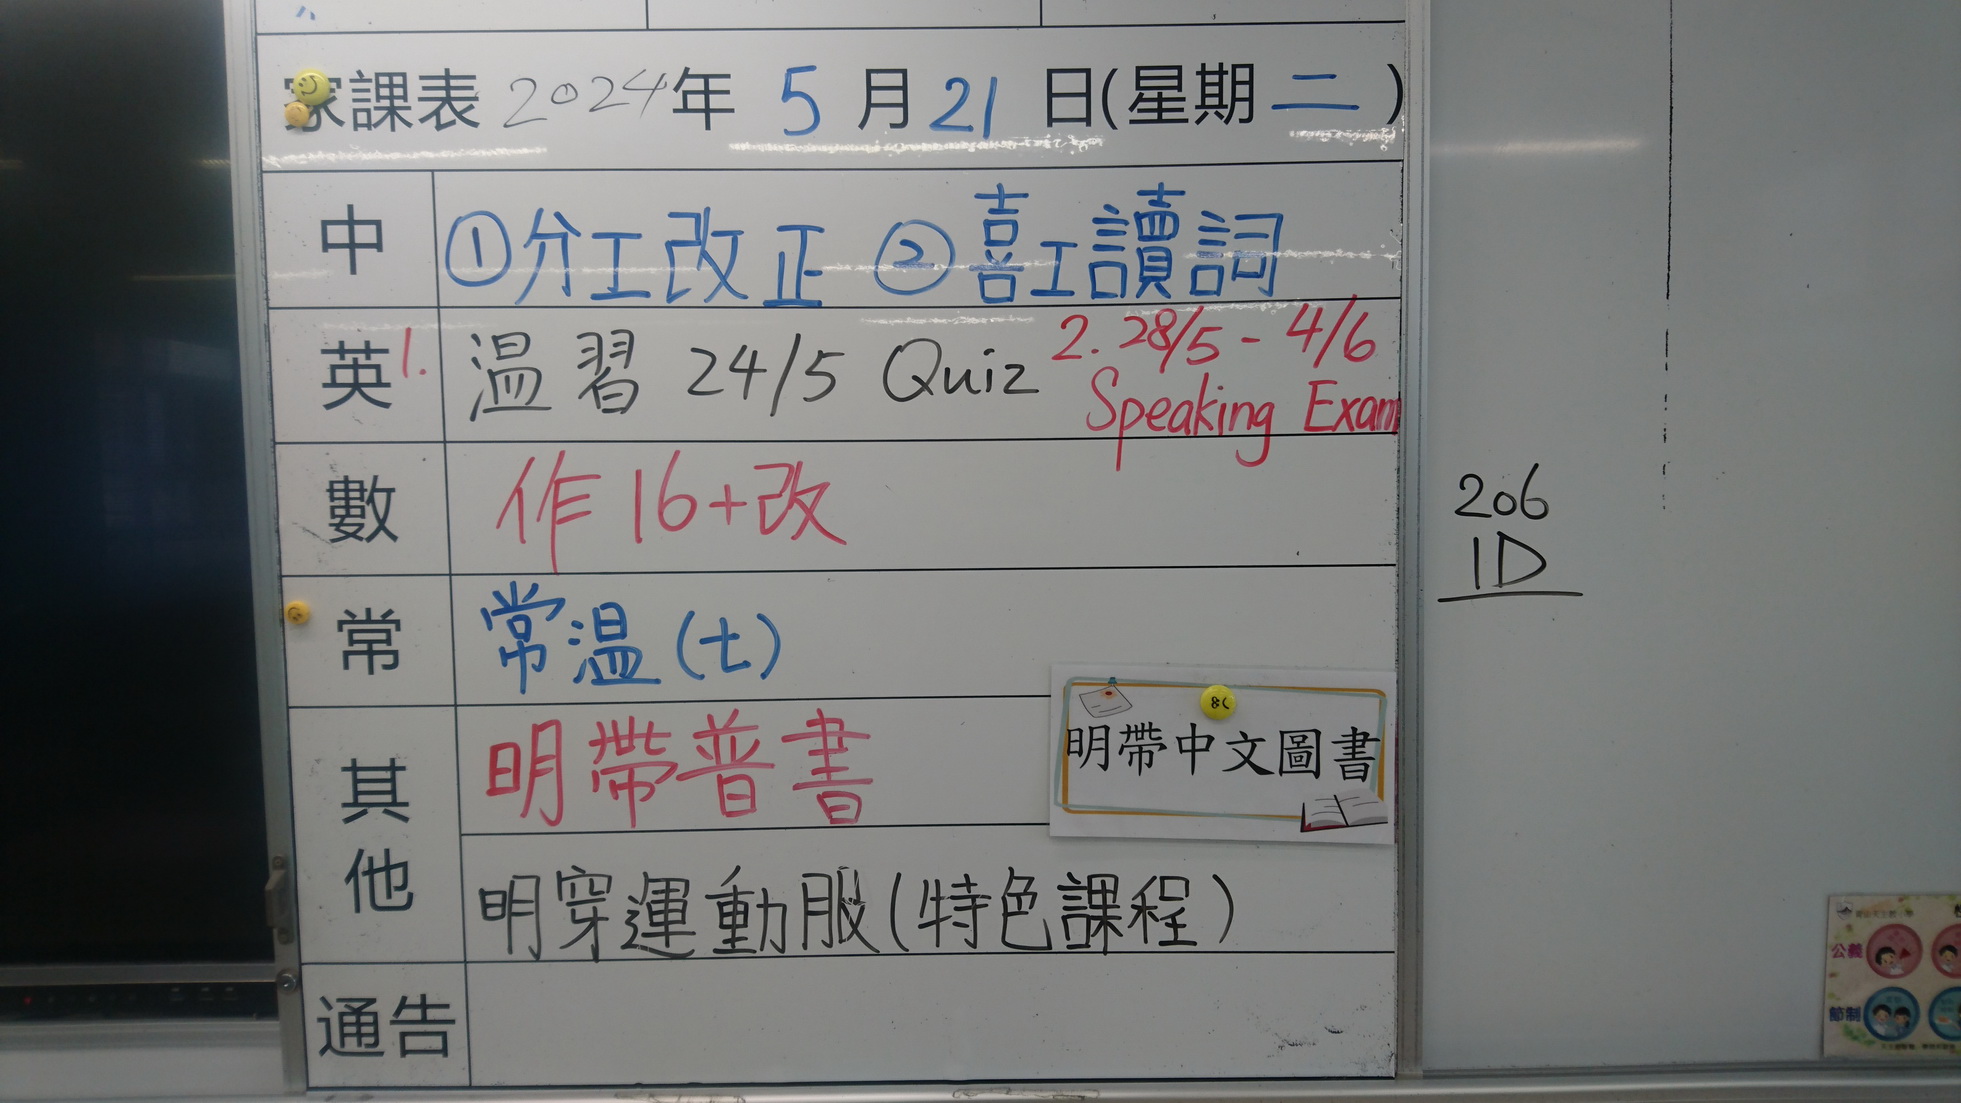 家課表 2024年 5月21日(星期二)
中 ①分工改正 ②喜工讀詞
英 1. 温習 24/5 Quiz 2. 28/5 - 4/6
Speaking Exam
數 作16+改
常 常温(七)
其他 明帶普書
明帶中文圖書
明穿運動服(特色課程)
通告
206
1D
公義
節制